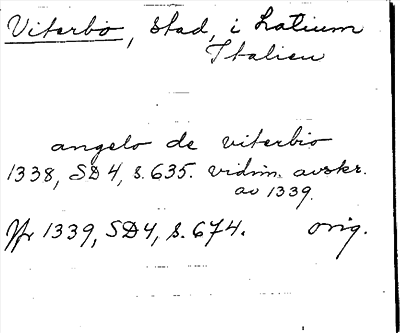 Viterbo, stad, i Latium
Italien
angelo de viterbio
1338, SD 4, s. 635. vidim. avskr.
av 1339.
Jfr 1339, SD 4, s. 674. orig.